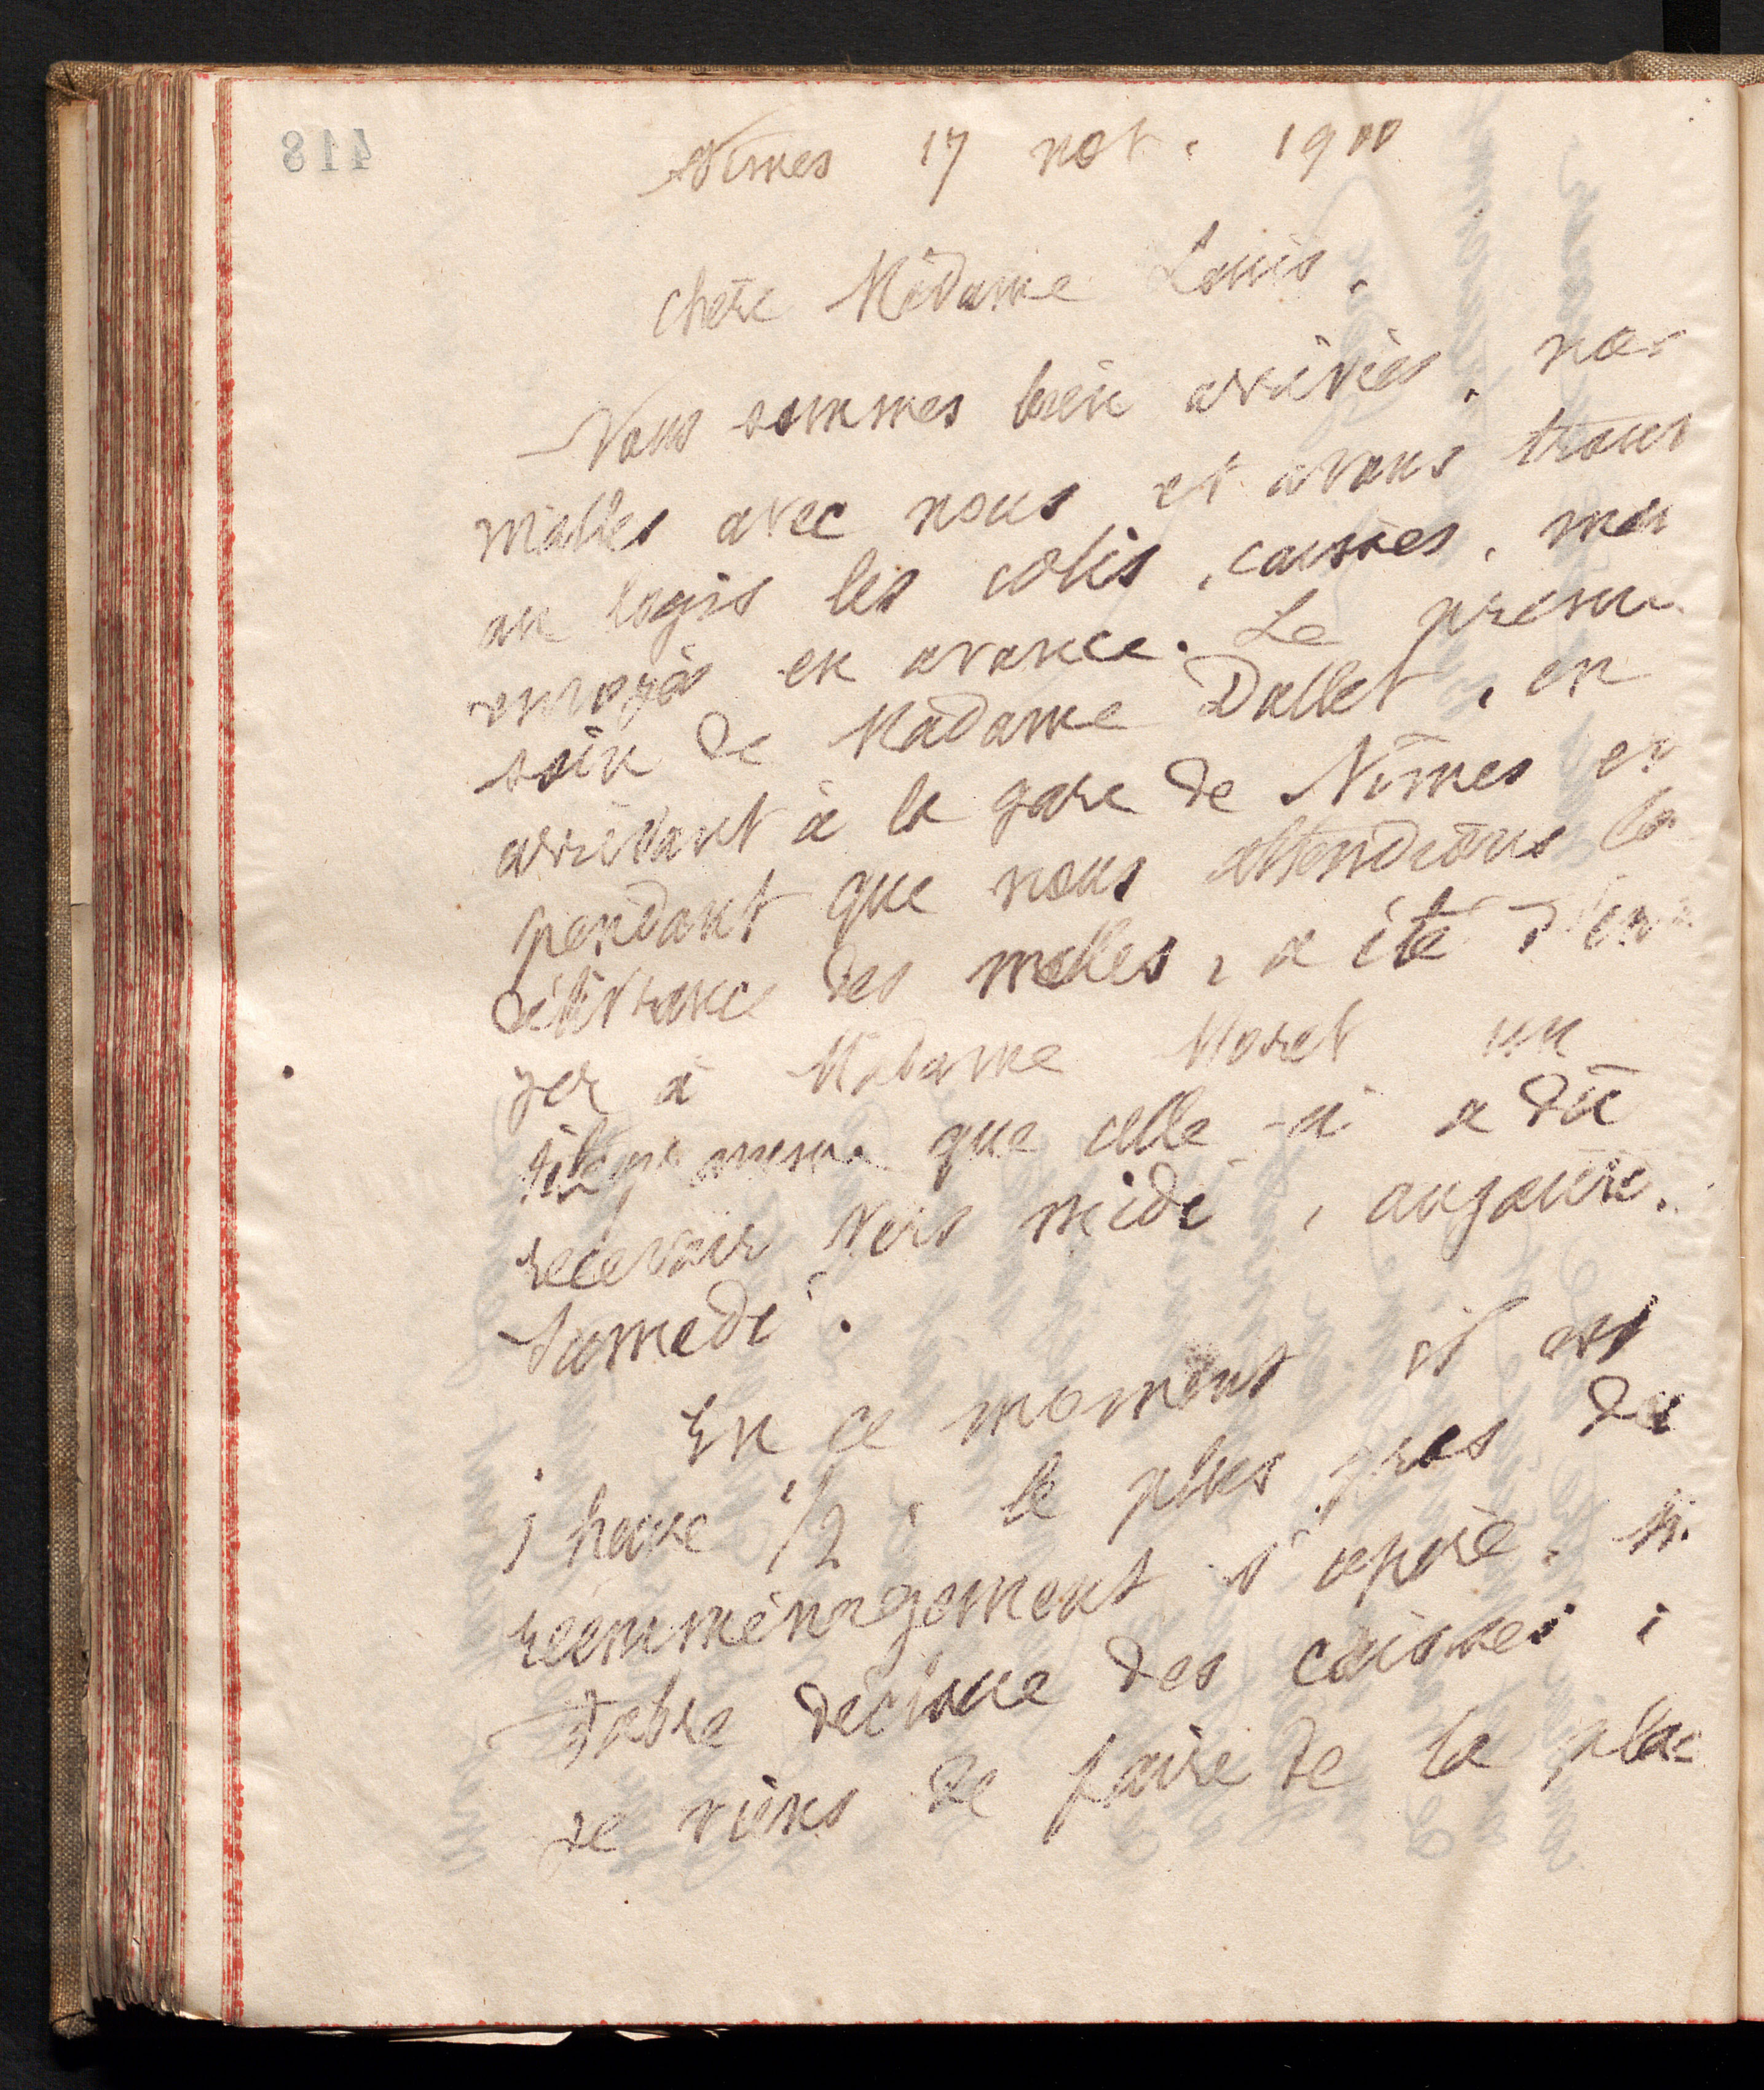 418
Nîmes 17 nov. 1900
Chère Madame Louis,
Nous sommes bien arrivés, nos
malles avec nous et avons trouv
au logis les colis, caisses,
envoyés en avance. Le premier
soin de Madame Dallet, en
arrivant à la gare de Nîmes et
pendant que nous attendions la
délivrance des malles, a été d'en
yer à Madame Moret un
télégramme que celle-ci a dû
recevoir vers midi, aujourd.
samedi.
En ce moment il est
1 heure 1/2 ; le plus gros du
réemménagement s'opère. M.
Fabre décloue des caisses ;
je viens de faire de la pla-